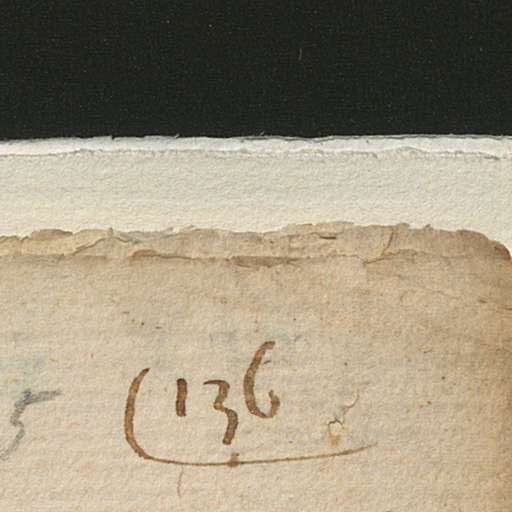 5 (136